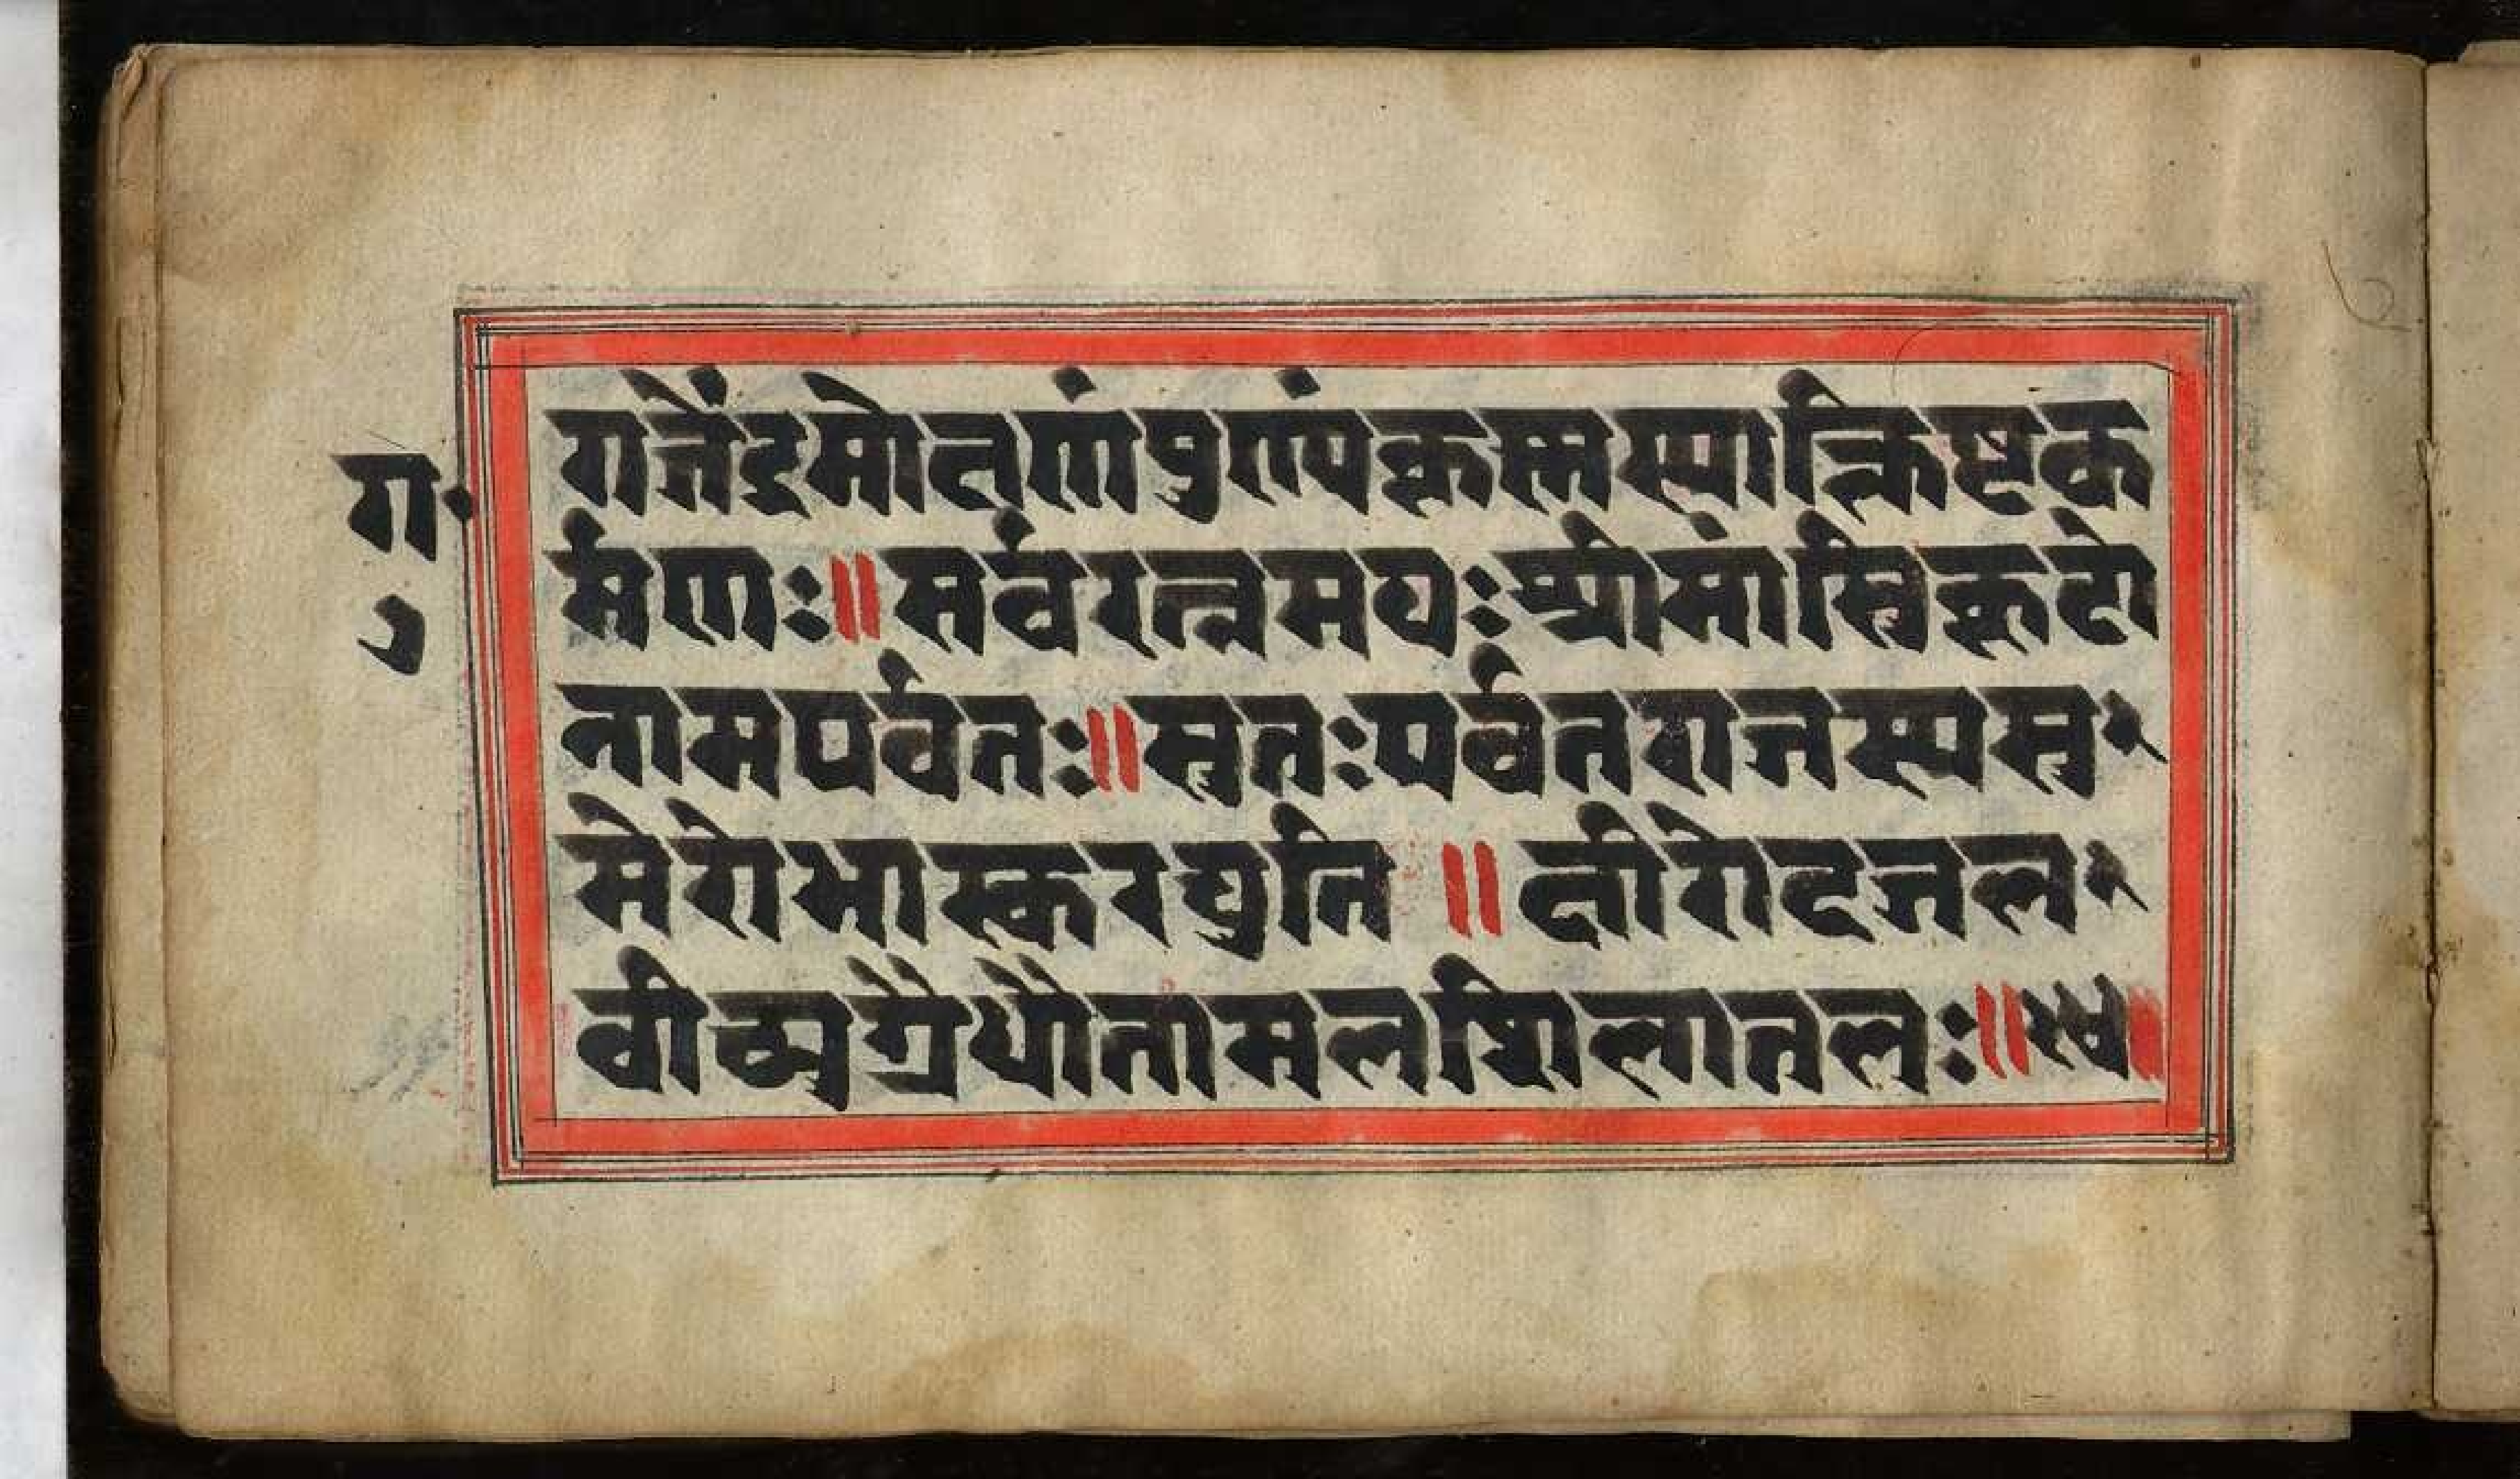 गजेंद्रमोक्षणंपुण्यंकृस्नस्याक्लिष्टक
र्मणः॥सर्वरत्नमयःश्रीमांस्त्रिकूटो
नामपर्वतः॥सुतःपर्वतराजस्यसु
मेरोभास्करद्युति॥क्षीरोदजल
वीच्यग्रैधौतामलशिलातलः॥
ग॰